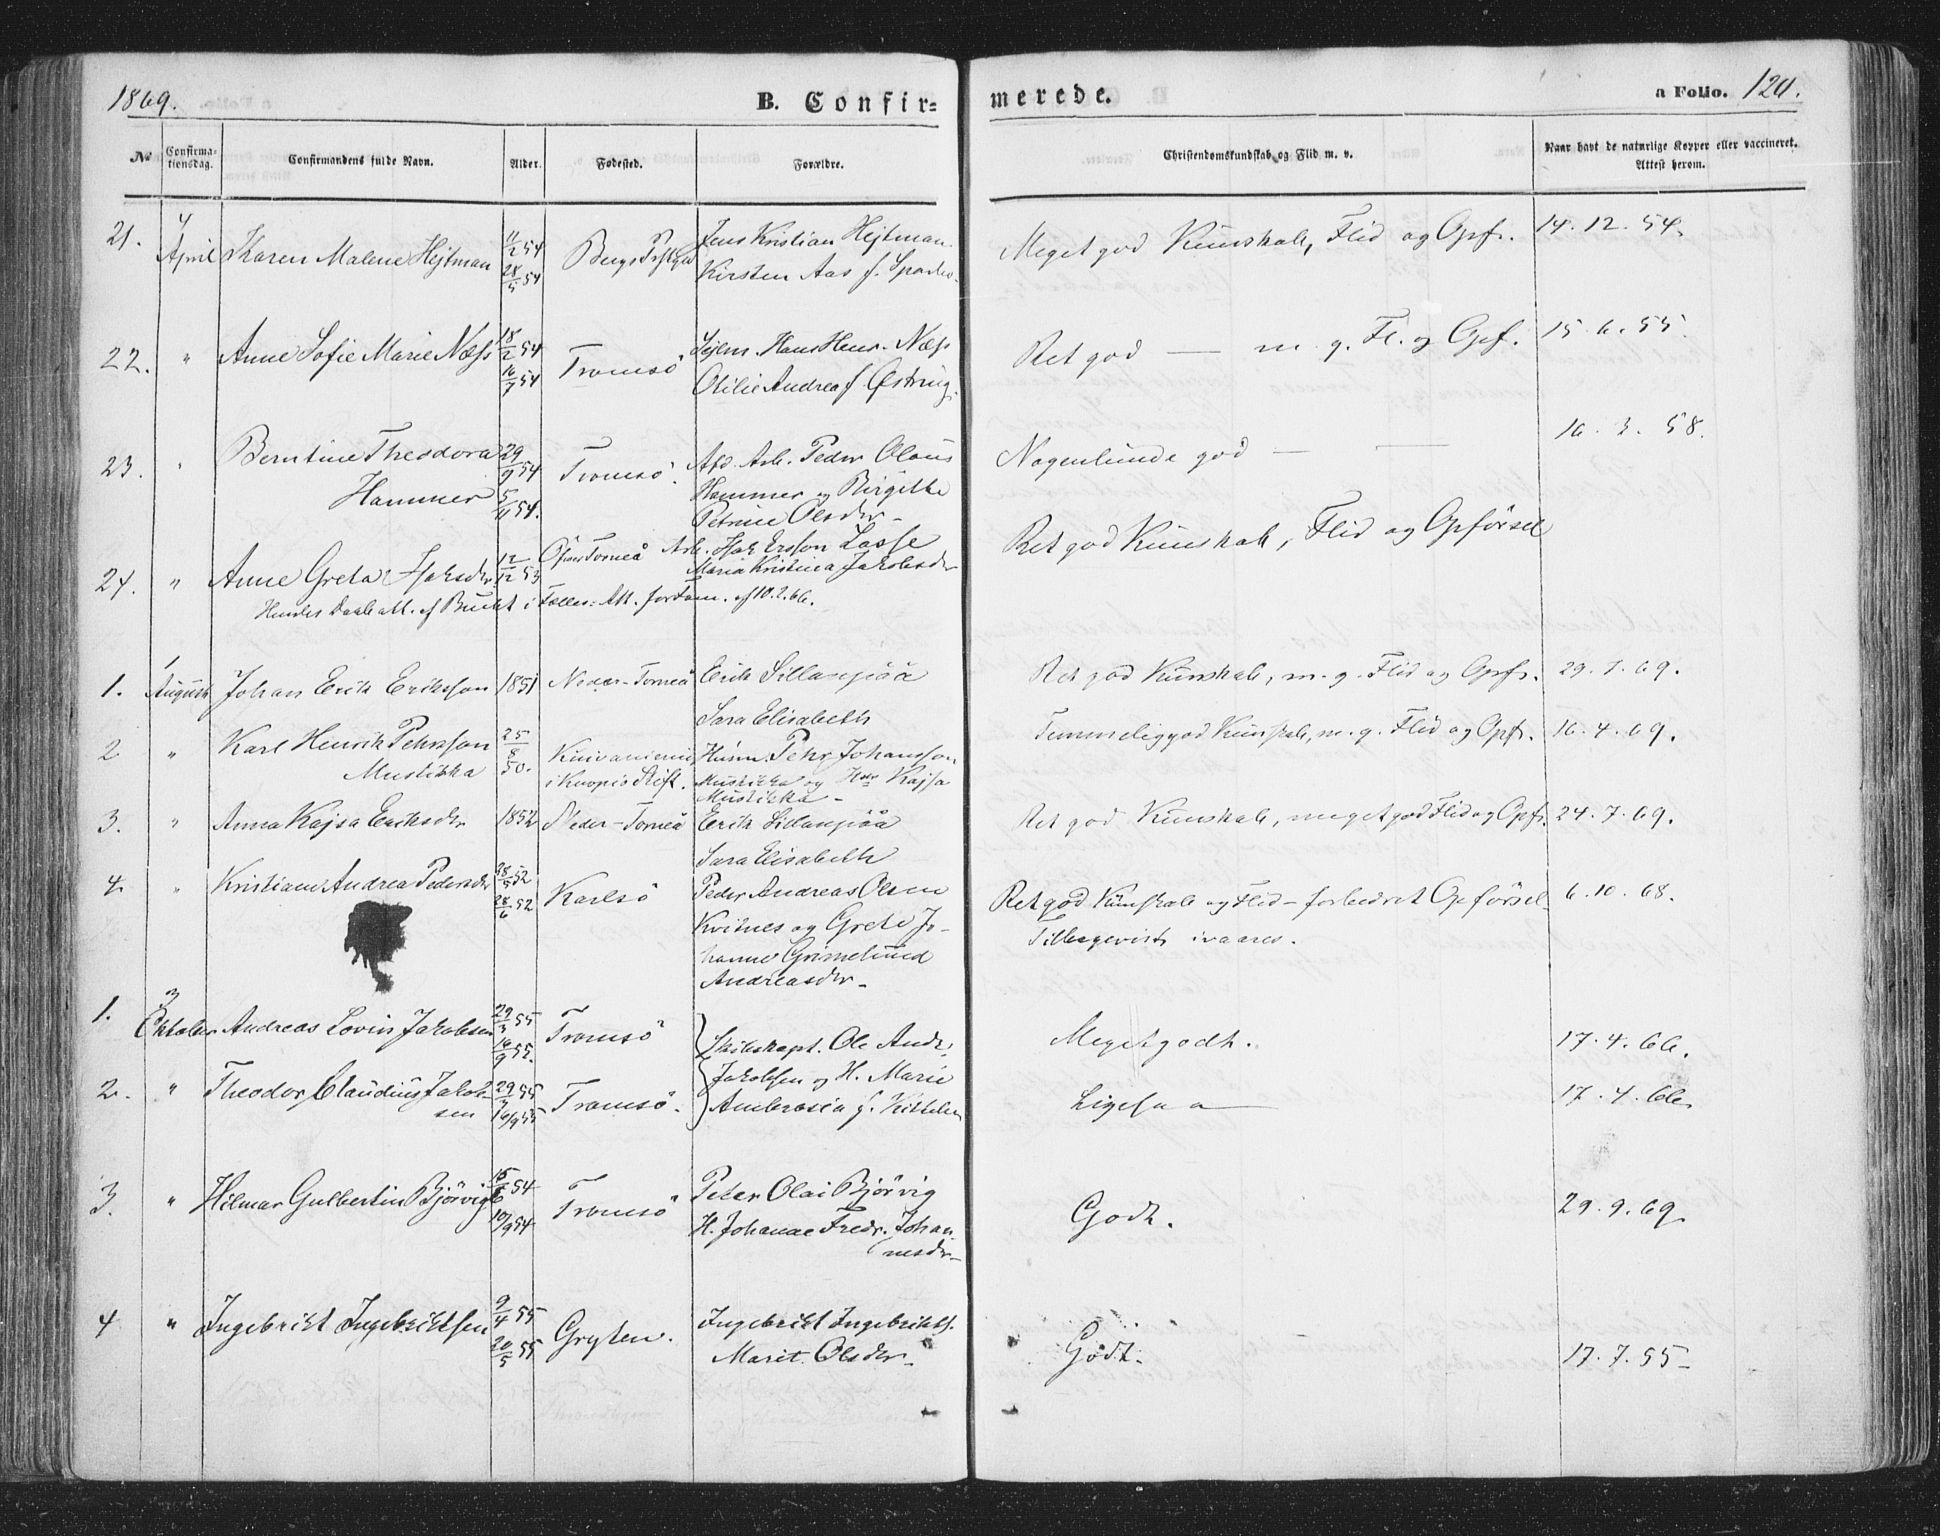 1869.
B. Confir=
merede.
a Folio. 120.
No
Confirma-
tionsdag.
Confirmandens fulde Navn.
Alder.
Fødested.
Forældre.
Christendomskundskab og Flid m. v.
Naar havt de naturlige Kopper eller vaccineret.
Attest herom.
21. 4 April Karen Malene Hejtman 11/2 54 28/5 54 Bergs Jens Kristian Hejtman
Kirsten Aas f.
Meget god Kundskab, Flid og Opf. 14. 12. 54.
22. " Anne Sofie Marie Næss 18/2 54 16/7 54 Tromsö Sejlm. Hans Henr. Næss
Otilie Andrea f. Østring
Ret god — m. g. Fl. og Opf. 15. 6. 55.
23. " Berntine Theodora
Hammer 29/9 54 5/11 54. Tromsö. Afd. Arb. Peder Olaus
Hammer og Birgitte
Petrine Olsdr
Nogenlunde god — — 16. 3. 58.
24. " Anne Greta Isaksdr 12/12 53 Öfver Torneå Arb. Isak Ersson Lasse
Maria Kristina Jakobsdr
Ret god Kundskab, Flid og Opförsel
Hendes Daabatt. af i Fælles: Att. for Tom. af 10. 2. 66.
1. 1 August Johan Erik Eriksson 1851 Neder-Torneå Erik Sillanpää
Sara Elisabeth
Ret god Kundskab, m. g. Flid og Opfr. 29. 7. 69.
2 " Karl Henrik Pehrsson
Mustikka 25/8 50. Kuivaniemi
i Kuopio Stift. Husm. Pehr Johansson
Mustikka og Hu Kajsa
Mustikka
Temmelig god Kundskab, m. g. Flid og Opf. 16. 4. 69.
3. " Anna Kajsa Eriksdr 1852 Neder-Torneå Erik Sillanpää
Sara Elisabeth
Ret god Kundskab, meget god Flid og Opfr. 24. 7. 69.
4. " Kristiane Andrea Pedersdr 28/5 52 28/6 52 Karlsö Peder Andreas Olsen
Kvitnes og Grete Jo-
hanne Grimelund
Andreasdr
Ret god Kundskab og Flid – forbedret Opförsel. 6. 10. 68.
1. 3 Oktober Andreas Lovin Jakobsen 29/3 55 16/9 55. Tromsö Skibskapt. Ole Andr.
Jakobsen og H. Marie
Ambrosia f. Kittelsen
Meget godt. 17. 4. 66.
2. " Theodor Claudius Jakob-
sen 29/3 55 16/9 55 Tromsö.
Ligesaa 17. 4. 66.
3. " Hilmar Gulbertin Björvig 15/6 54 10/9 54 Tromsö Peter Olai Björvig
H. Johanne Fredr. Johan-
nesdr
Godt. 29. 9. 69.
4 " Ingebrikt Ingebriktsen 9/4 55 20/5 55 Gryten. Ingebrikt Ingebrikts.
Marit Olsdr
Godt. 17. 7. 55